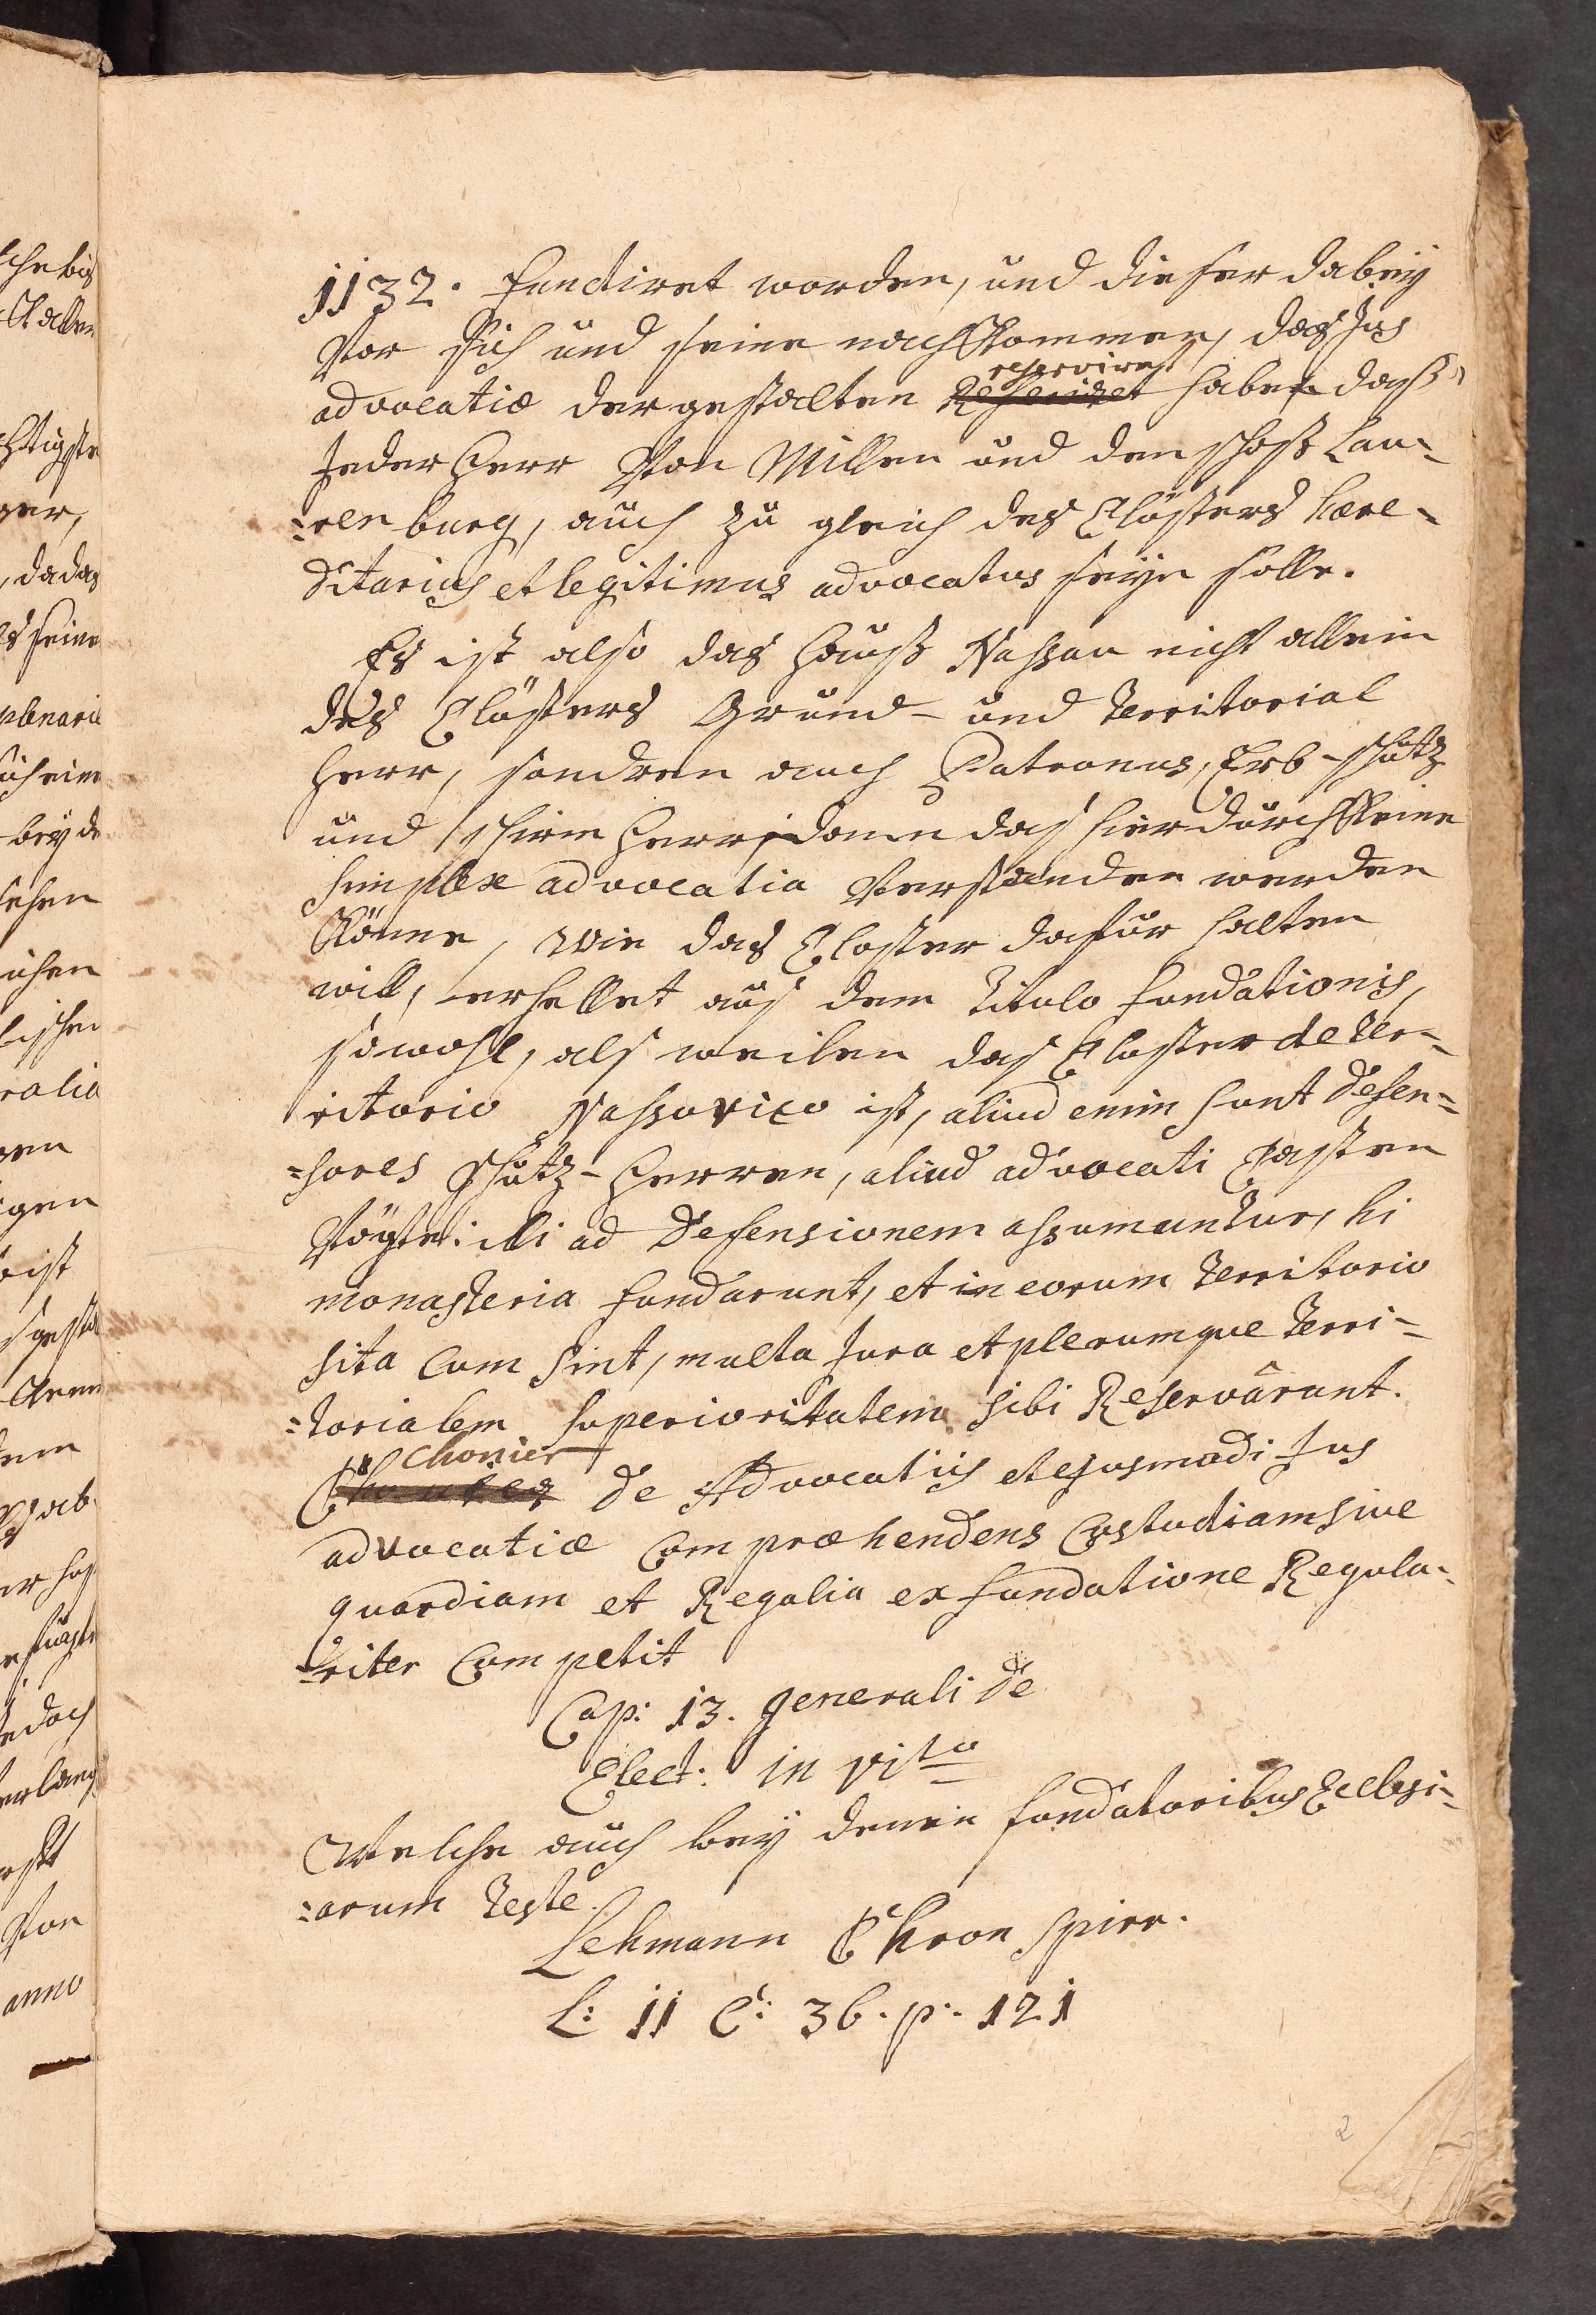 1132. fundiret worden, und dieser dabey
Vor sich und seine nachkommen, das Jus
advocatiæ dergestalten reserviret haben daß
Jeder Herr Von Millen und den schoß Lau-
=renburg, auch zu gleich des Clösters hære-
ditarius et legitimus advocatus seyn solle.
Es ist also das Hauß Nassau nicht allein
des Clösters Grund- und Territorial
Herr, sondern auch Patronus, Erb-schutz
und schirm Herr, dann das hierdurch keine
simplex advocatia Verstanden werden
könne, wie das Closter dafür halten
will, erhellet aus dem Titulo fundationis,
sowohl, als weilen das Closter de Ter-
ritorio Nassovico ist, aliud enim sunt defen-
=sores Schutz-Herren, aliud advocati Casten
Vögte: illi ad Defensionem assumuntur, hi
monasteria fundarunt, et in eorum Territorio
sita cum sint, multa Jura et plerumque Terri-
=torialem superioritatem sibi Reservârunt.
Chonier de Advocatiis et ejusmodi Jus
advocatiæ Compræhendens Custudiam sive
guardiam et Regalia ex fundatione Regula-
=riter Competit
Cap: 13. generali de
Elect: in vi<sup>to</sup>
Welche auch bey denen fundatoribus Ecclesi-
=arum Teste.
Lehmann Chron Spirr.
L: 11 C: 36. p. 121
2